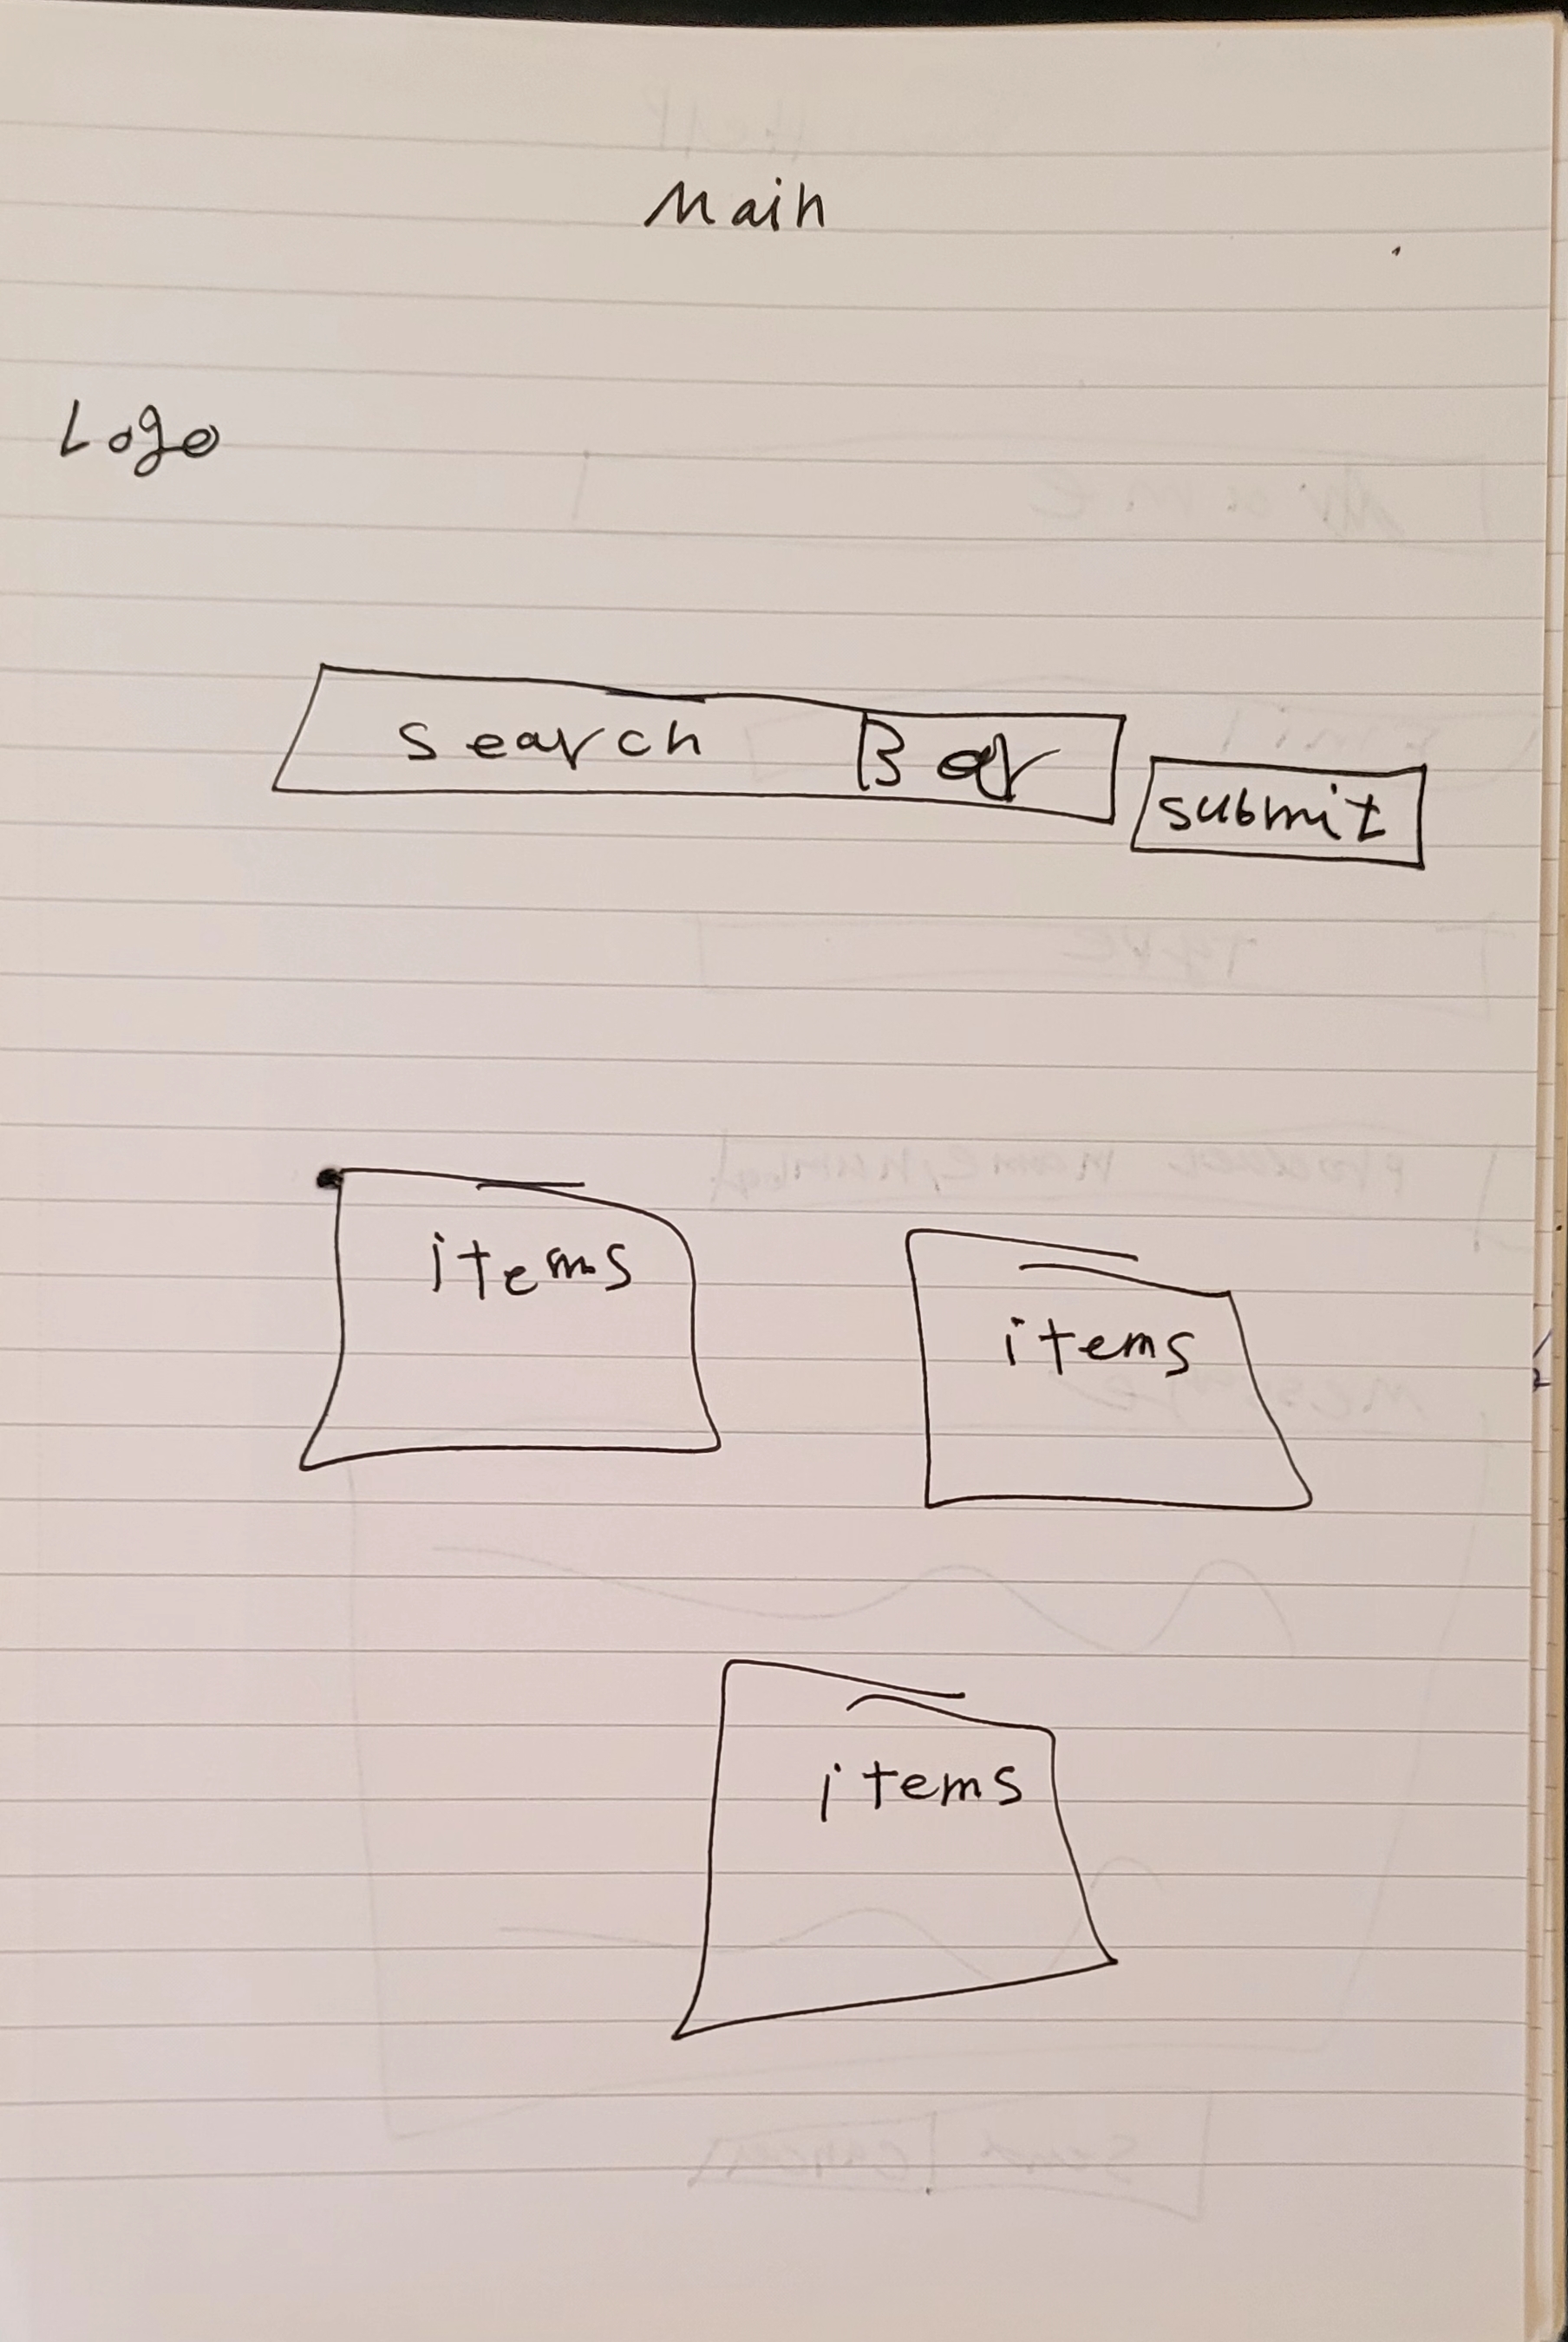 Main
Logo
search Bar
submit
items
items
items